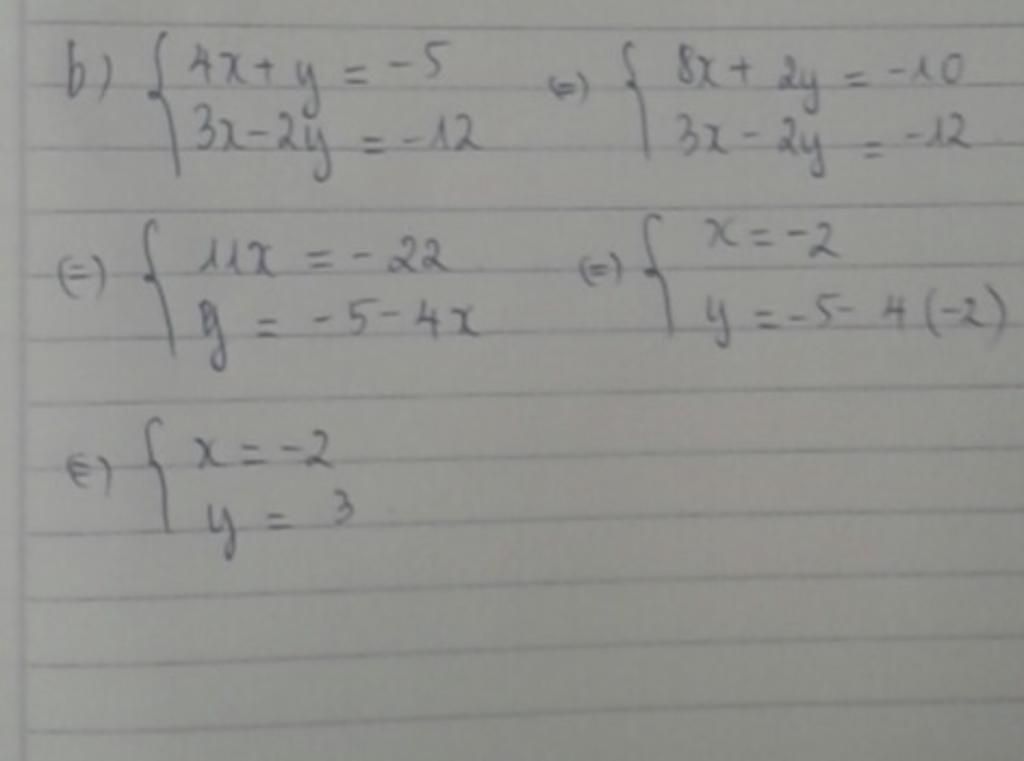 b) { 4x + y = -5 (=) { 8x + 2y = -10
3x - 2y = -12 3x - 2y = -12
(=) { 11x = -22 (=) { x = -2
y = -5 - 4x y = -5 - 4(-2)
(=) { x = -2
y = 3